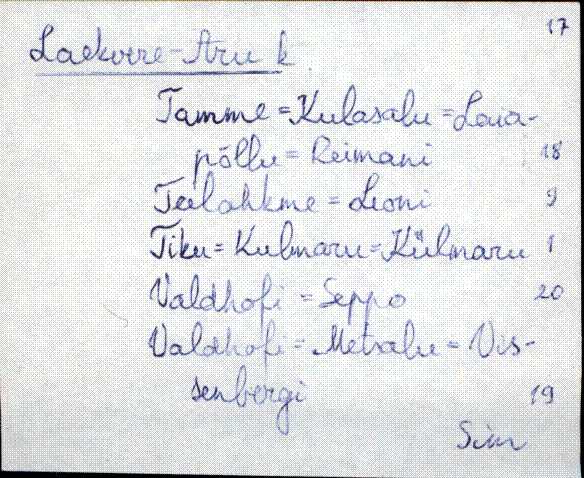 17
Laekvere-Aru k.
Tamme = Kulasalu = Laua-
põllu = Reimani 18
Teelahkme = Leoni 9
Tiku = Kulmaru = Külmaru 1
Valdhofi = Seppo 20
Valdhofi = Metsalu = Vis-
senbergi 19
Sim